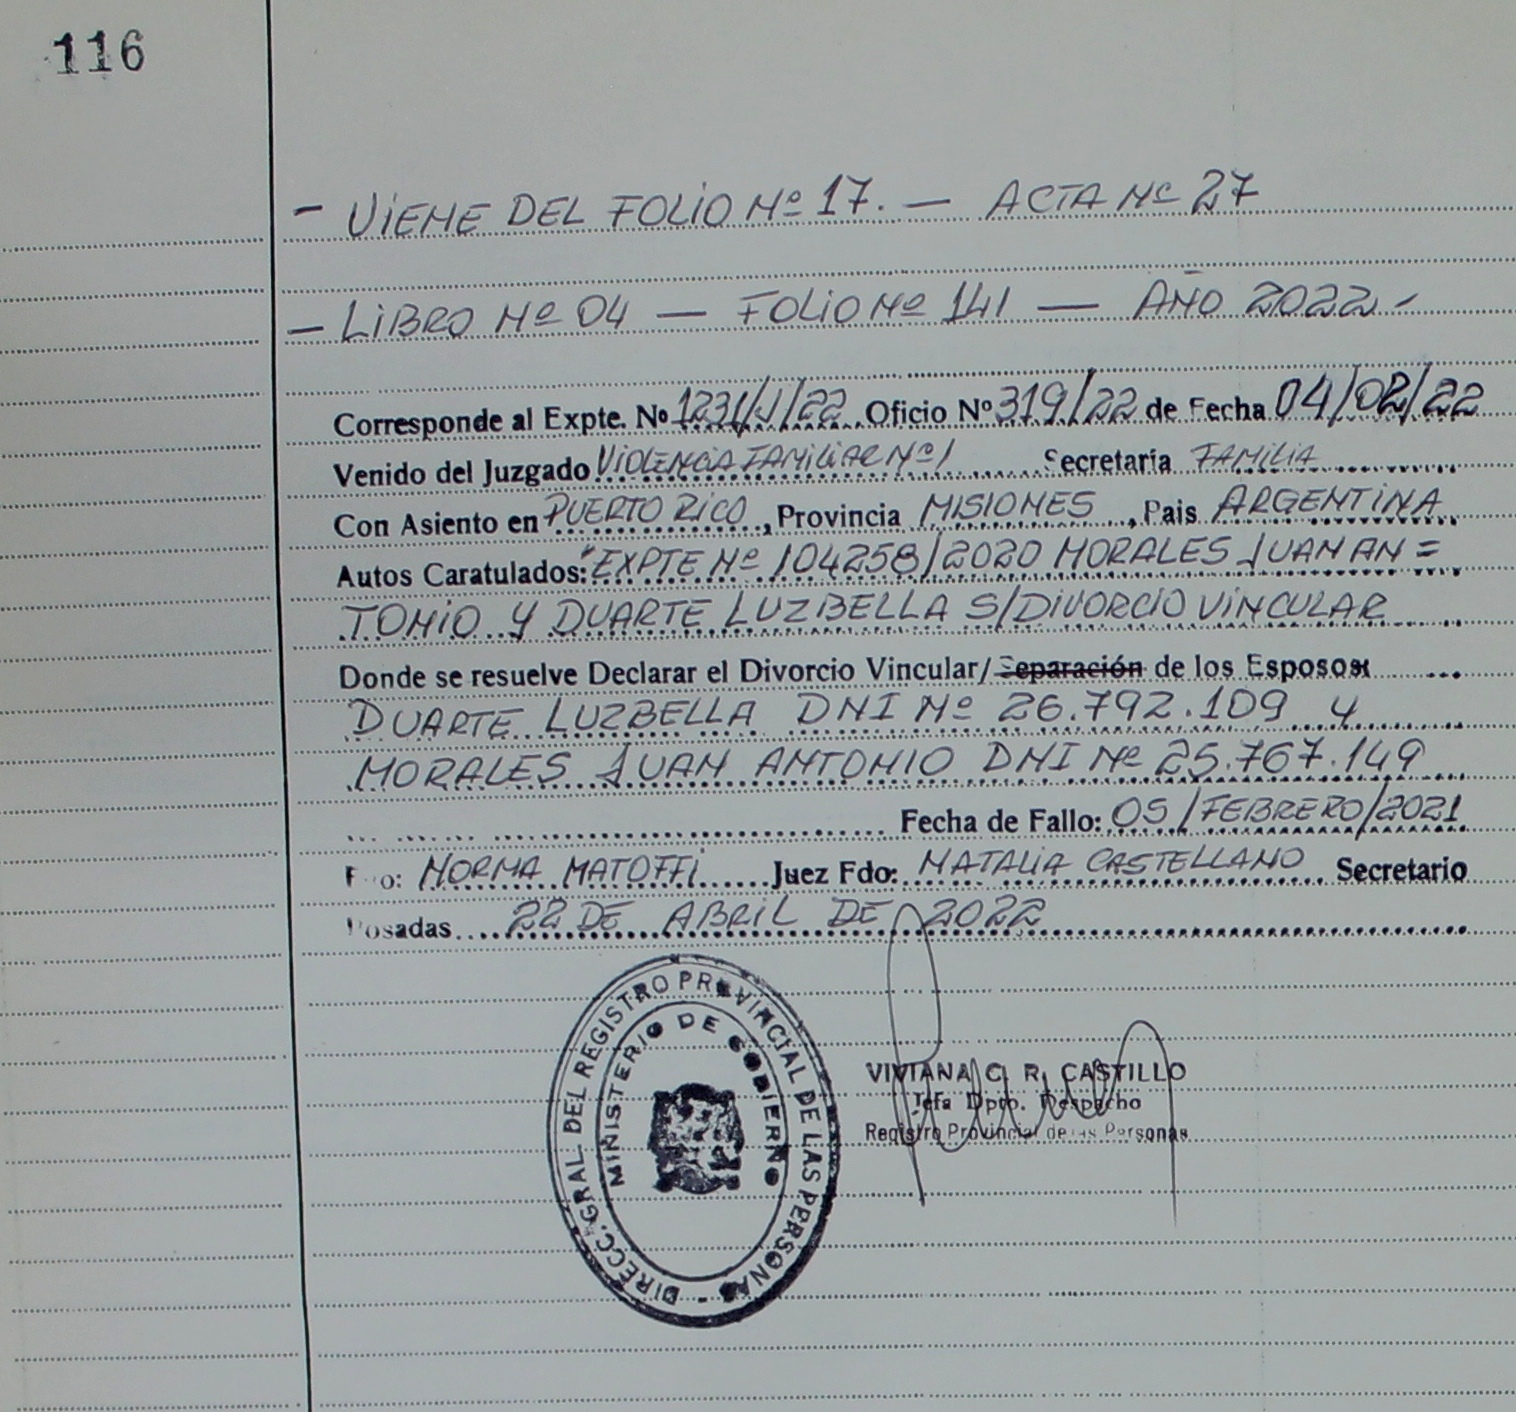 116
- VIENE DEL FOLIO Nº 17. — ACTA Nº 27
- LIBRO Nº 04 — FOLIO Nº 141 — AÑO 2022 -
Corresponde al Expte. Nº 1231/J/22 Oficio Nº 319/22 de Fecha 04/02/22
Venido del Juzgado VIOLENCIA FAMILIAR Nº 1 Secretaría FAMILIA
Con Asiento en PUERTO RICO, Provincia MISIONES, Pais ARGENTINA
Autos Caratulados: "EXPTE Nº 104258/2020 MORALES JUAN AN=
TONIO Y DUARTE LUZBELLA S/DIVORCIO VINCULAR
Donde se resuelve Declarar el Divorcio Vincular/Separación de los Esposos:
DUARTE LUZBELLA DNI Nº 26.792.109 y
MORALES JUAN ANTONIO DNI Nº 25.767.149
Fecha de Fallo: 05/FEBRERO/2021
NORMA MATOFFI Juez Fdo: NATALIA CASTELLANO Secretario
Posadas 22 DE ABRIL DE 2022
DIRECC. GRAL. DEL REGISTRO PROVINCIAL DE LAS PERSONAS -
MINISTERIO DE GOBIERNO
VIVIANA C. R. CASTILLO
Jefa Dpto. Despacho
Registro Provincial de las Personas